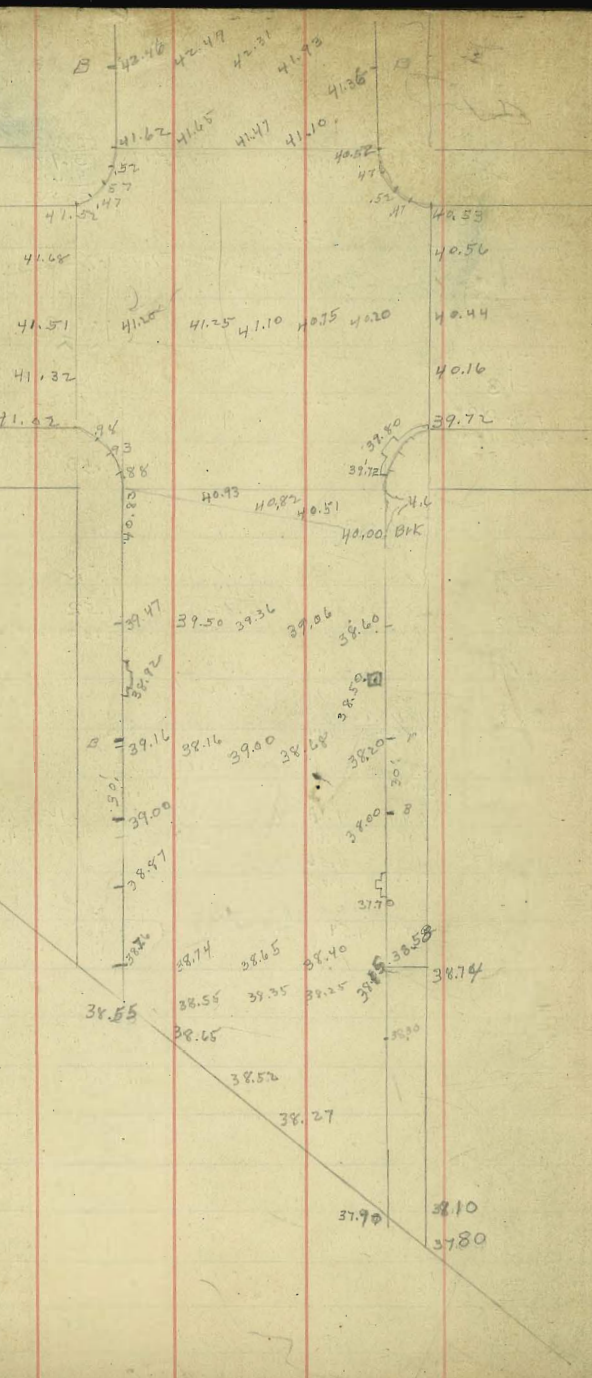 B 42.46 42.49 42.31 41.93 41.36 B
41.62 41.65 41.47 41.10 40.52
.52 .57 .47
.47 .52 .47
41.52 40.53
41.68 40.56
41.51 41.25 41.25 41.10 40.75 40.20 40.44
41.32 40.16
41.02 39.72
.98 39.80
.93
.88 39.72
40.83 40.93 40.82 40.51 4.6
40.00 Brk
39.47 39.50 39.36 39.06 38.60
38.92 38.50
B 39.16 38.16 39.00 38.68 38.20
30' 30'
39.00 38.00 B
38.87
37.70
38.76 38.74 38.65 38.40 38.58
38.74
38.55 38.55 38.35 38.25
38.65
38.52
38.27
37.90 38.10
37.80